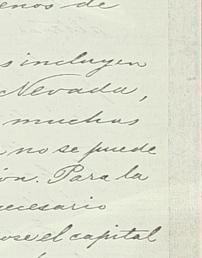 enos de
s incluyen
Nevada,
muchas
no se puede
ón. Para la
ecesario
ose el capital